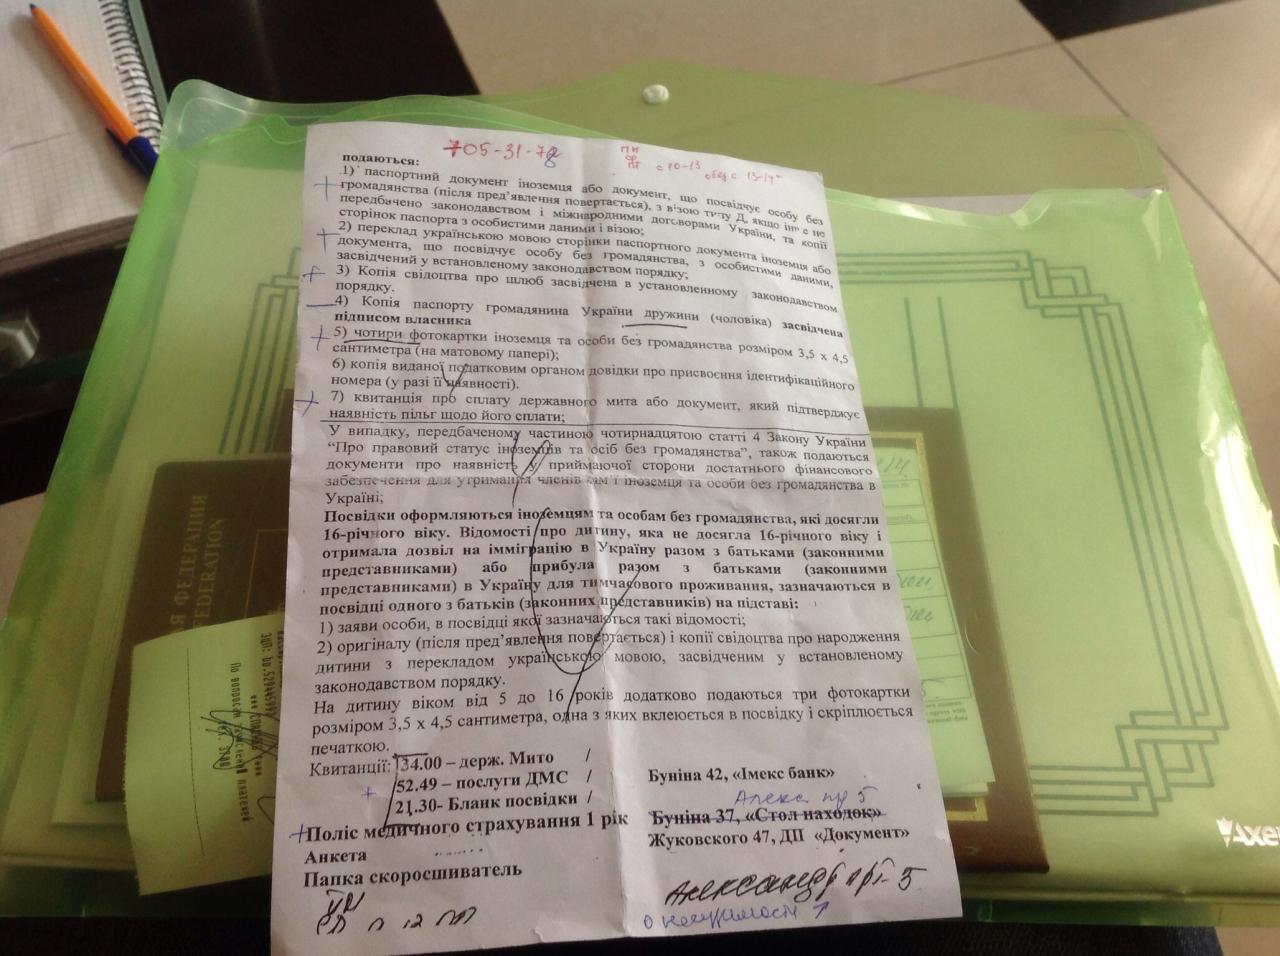 705-31-78
ПН
с 10-13
обед с 13-14
подаються:
1) паспортний документ іноземця або документ, що посвідчує особу без
громадянства (після пред'явлення повертається), з візою типу Д, якщо інше не
передбачено законодавством і міжнародними договорами України, та копії
сторінок паспорта з особистими даними і візою;
2) переклад українською мовою сторінки паспортного документа іноземця або
документа, що посвідчує особу без громадянства, з особистими даними,
засвідчений у встановленому законодавством порядку;
3) Копія свідоцтва про шлюб засвідчена в установленному законодавством
порядку.
4) Копія паспорту громадянина України дружини (чоловіка) засвідчена
підписом власника
5) чотири фотокартки іноземця та особи без громадянства розміром 3,5 х 4,5
сантиметра (на матовому папері);
6) копія виданої податковим органом довідки про присвоєння ідентифікаційного
номера (у разі її наявності).
7) квитанція про сплату державного мита або документ, який підтверджує
наявність пільг щодо його сплати;
У випадку, передбаченому частиною чотирнадцятою статті 4 Закону України
“Про правовий статус іноземців та осіб без громадянства”, також подаються
документи про наявність у приймаючої сторони достатнього фінансового
забезпечення для утримання членів сім'ї іноземця та особи без громадянства в
Україні;
Посвідки оформляються іноземцям та особам без громадянства, які досягли
16-річного віку. Відомості про дитину, яка не досягла 16-річного віку і
отримала дозвіл на імміграцію в Україну разом з батьками (законними
представниками) або прибула разом з батьками (законними
представниками) в Україну для тимчасового проживання, зазначаються в
посвідці одного з батьків (законних представників) на підставі:
1) заяви особи, в посвідці якої зазначаються такі відомості;
2) оригіналу (після пред'явлення повертається) і копії свідоцтва про народження
дитини з перекладом українською мовою, засвідченим у встановленому
законодавством порядку.
На дитину віком від 5 до 16 років додатково подаються три фотокартки
розміром 3,5 х 4,5 сантиметра, одна з яких вклеюється в посвідку і скріплюється
печаткою.
Квитанції: 34.00 – держ. Мито / Буніна 42, «Імекс банк»
52.49 – послуги ДМС /
Алекс пр 5
21.30- Бланк посвідки / Буніна 37, «Стол находок»
Поліс медичного страхування 1 рік Жуковского 47, ДП «Документ»
Анкета
Папка скоросшиватель
Александр прт-5
о несудимости
ФЕДЕРАЦИЯ
FEDERATION
Axent